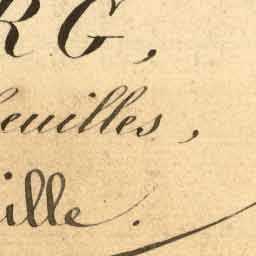 RG,
feuilles,
ille.